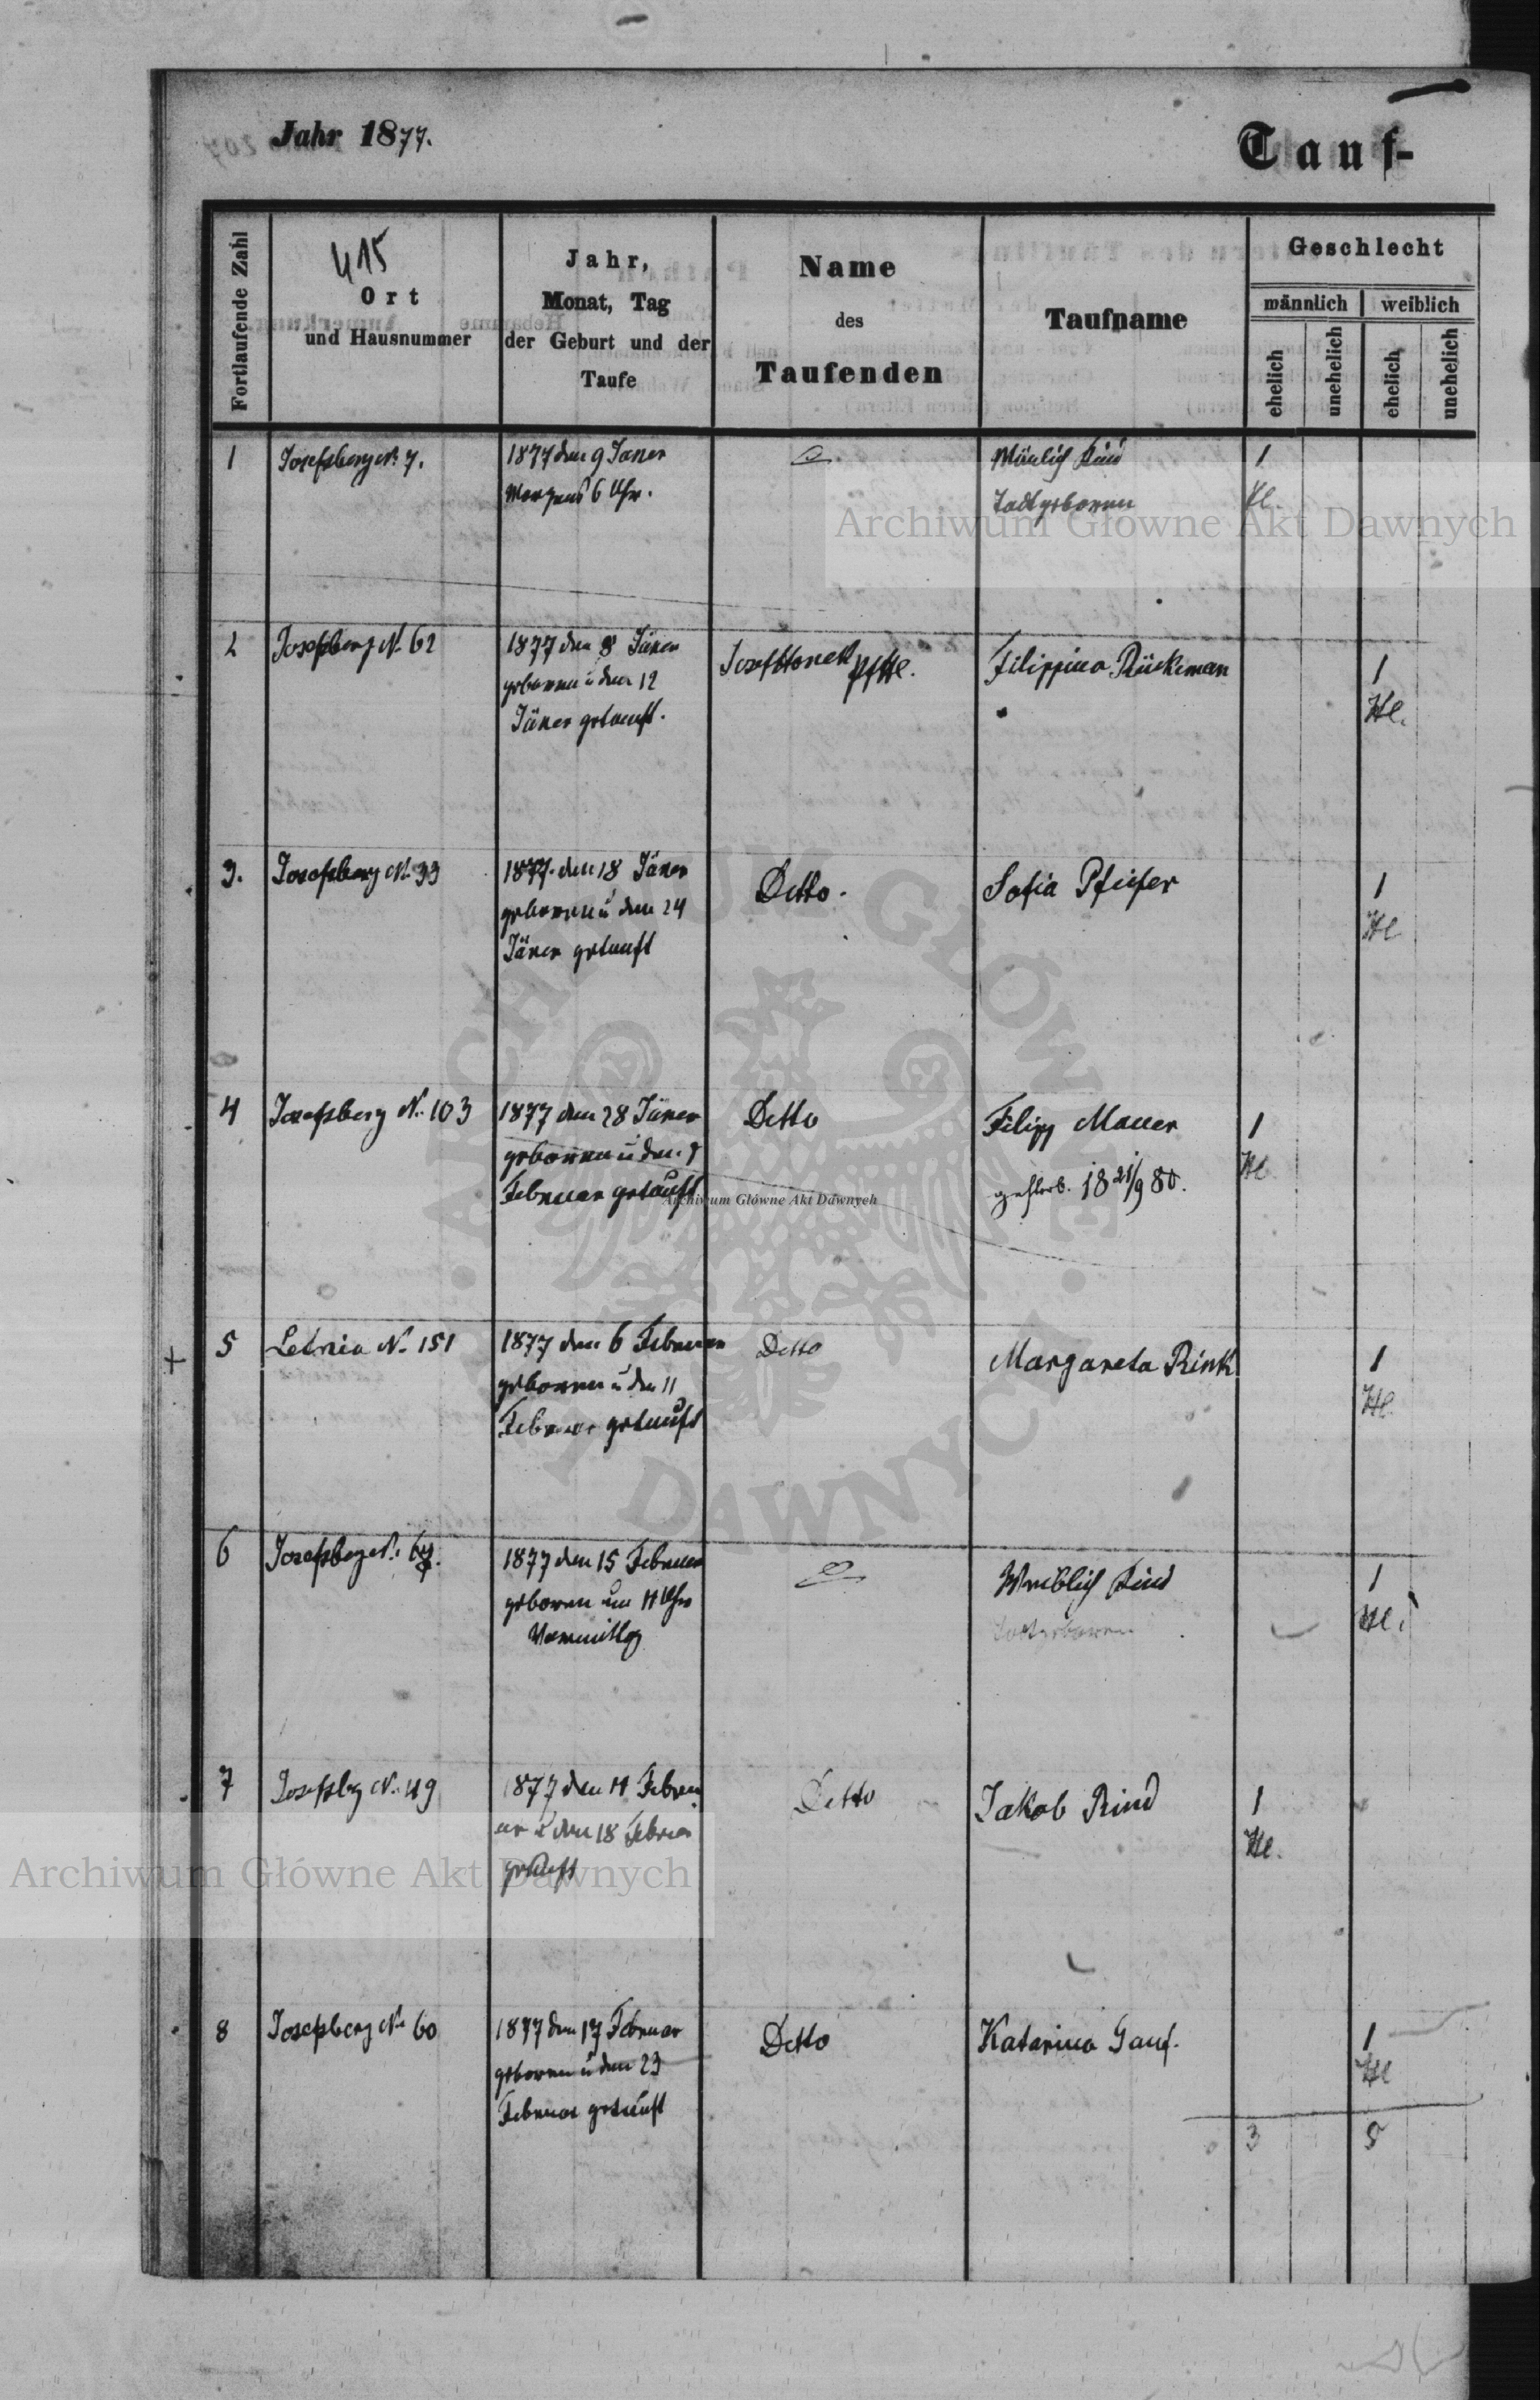 Jahr 1877.
Tauf-
Fortlaufende Zahl
415
Ort
und Hausnummer
Jahr,
Monat, Tag
der Geburt und der
Taufe
Name
des
Taufenden
Taufname
Geschlecht
männlich
weiblich
ehelich
unehelich
ehelich
unehelich
1 Josefsberg N. 7. 1877 den 9 Janer Mänlich Kind 1
Morgens 6 Uhr. Todtgeboren
Archiwum Główne Akt Dawnych
2 Josefsberg N. 62 1877 den 8 Jäner Filippina Rückeman 1
geboren u den 12 Hl.
Jäner getauft.
3. Josefsberg N. 33 1877. den 18 Jäner Detto. Sofia Pfeifer 1
geboren u den 24 Hl
Jäner getauft
4 Josefsberg N. 103 1877 den 28 Jäner Detto Filipp Mauer 1
geboren u den Hl
Februar getauft gestorb. 18 21/9 80.
Archiwum Główne Akt Dawnych
5 Letnia N. 151 1877 den 6 Februar Detto Margareta Rink 1
geboren u den 11 Hl
Februar getauft
6 Josefsberg N. 1877 den 15 Februar Weiblich Kind 1
geboren um 11 Uhr Todtgeboren Hl.
Vormittag
7 Josefsbg N. 49 1877 den 11 Febru Detto Jakob Rind 1
ar u den 18 Februar Hl.
getauft
Archiwum Główne Akt Dawnych
8 Josefsberg N. 60 1877 den 17 Februar Detto Katarina Gauf. 1
geboren u den 23 Hl
Februar getauft
3 5
ARCHIWUM GŁÓWNE AKT DAWNYCH